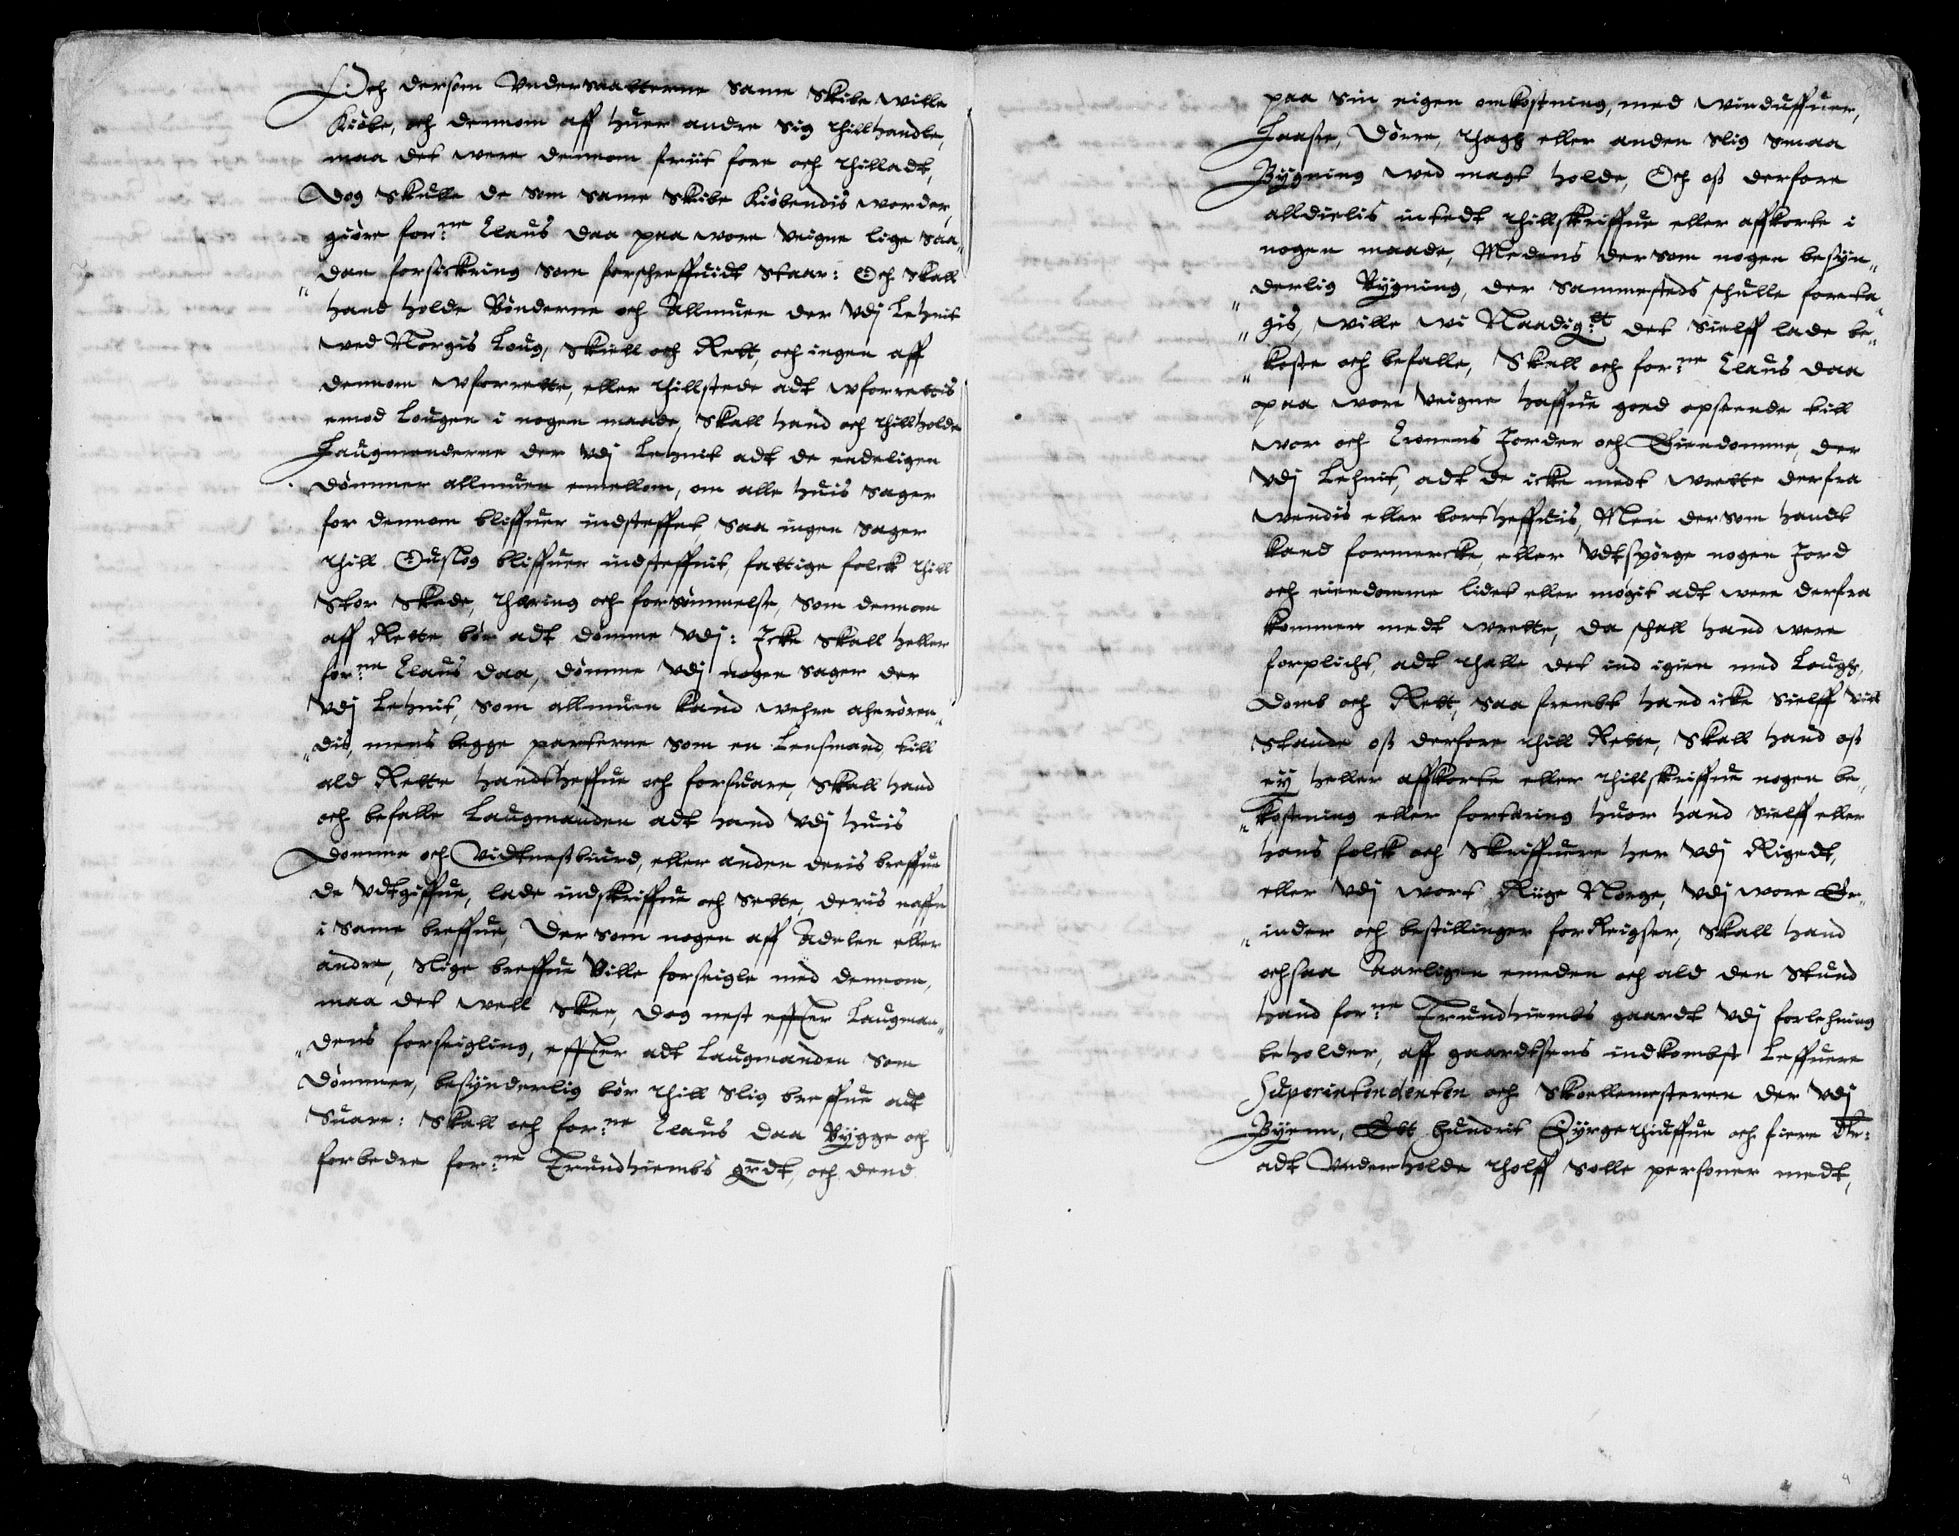 Och dersom Vndersaatterne same Skibe wille
Kiøbe, och dennom aff huer andre sig thillhandle,
maa det were dennom friit fore och thilladt,
Dog Skulle de som same Skibe Kiøbendis worder,
giøre for:ne Claus daa paa wore veigne lige saa„
„dan forsickring som forschreffuidt staar: Och skall
hand holde Bønderne och Allmuen der vdj Lehnit
wed Norgis Loug, Skiell och Rett, och ingen aff
dennom wforrette, eller thillstede adt wforrettis
emod Lougen i nogen maade, Skall hand och thillholde
Laugmenderne der vdj Lehnit adt de endeligen
dømmer allmuen emellom, om alle huis sager
for dennom bliffuer indsteffnet, saa ingen sager
thill Ouslog bliffuer indsteffnit, fattige folck thill
stor skade, thæring och forsømmelse, som dennom
aff Rette bør adt dømme vdj: Icke skall heller
for:ne Claus daa, dømme vdj nogen sager der
vdj Lehnit, som allmuen kand wehre anrøren„
„dis, mens begge parterne som en Lensmand, till
ald Rette handtheffue och forsuare, Skall hand
och befalle Laugmanden adt hand vdj huis
Domme och Vidtneßbiurd, eller anden deris breffue
de vdtgiffue, lade indskriffue och sette, deris naffn
i same breffue, Der som nogen aff Adelen eller
andre, slige breffue ville forseigle med dennom,
maa det well skee, dog nest effter Laugman„
„dens forseigling, effter adt Laugmanden som
dømmer, besynderlig bør thill slig breffue adt
suare: Skall och for:ne Claus daa Bygge och
forbedre for:ne Trundhiembs grdt, och dend
paa sin eigen omkostning, med winduffuer,
Laase, Dørre, thagh eller anden slig smaa
Bygning wed magt holde, Och oß derfore
alldielis intedt thillskriffue eller affkorte i
nogen maade, Medens der som nogen besyn„
„derlig Bygning, der sammesteds schulle foreta„
„gis, wille wi Naadig:tt det sielff lade be„
„koste och befalle, Skall och for:ne Claus daa
opaa wore veigne haffue goed opseende till
wor och Cronens Jorder och Eiendomme, der
vdj Lehnit, adt de icke medt wrette derfra
wendis eller bortheffdis, Men der som handt
kand formercke, eller vdtspørge nogen Jord
och eiendomme lidet eller møgit adt were derfra
kommen medt wrette, da schall hand were
forplicht, adt thalle det ind igien med Laugh,
Domb och Rett, saa frembt hand icke sielff vill
stande oß derfore thill Rette, Skall hand oß
ey heller affkorte eller thillskriffue nogen be„
„kostning eller fortæring huor hand sielff eller
hans folck och Skriffuere her vdj Rigedt,
eller vdj wort Riige Norge, vdj wore Er„
„inder och bestillinger forReigser, Skall hand
ochsaa Aarligen emeden och ald den stund
hand for:ne Trundhiembs gaardt vdj forlehning
beholder, aff gaardtsens indkombst Leffuere
Superintendenten och Skoellemesteren der vdj
Byenn, Ett hundrit Tyrgethiuffue och fiere Dlr:
adt vnderholde tholff Solle personer medt,